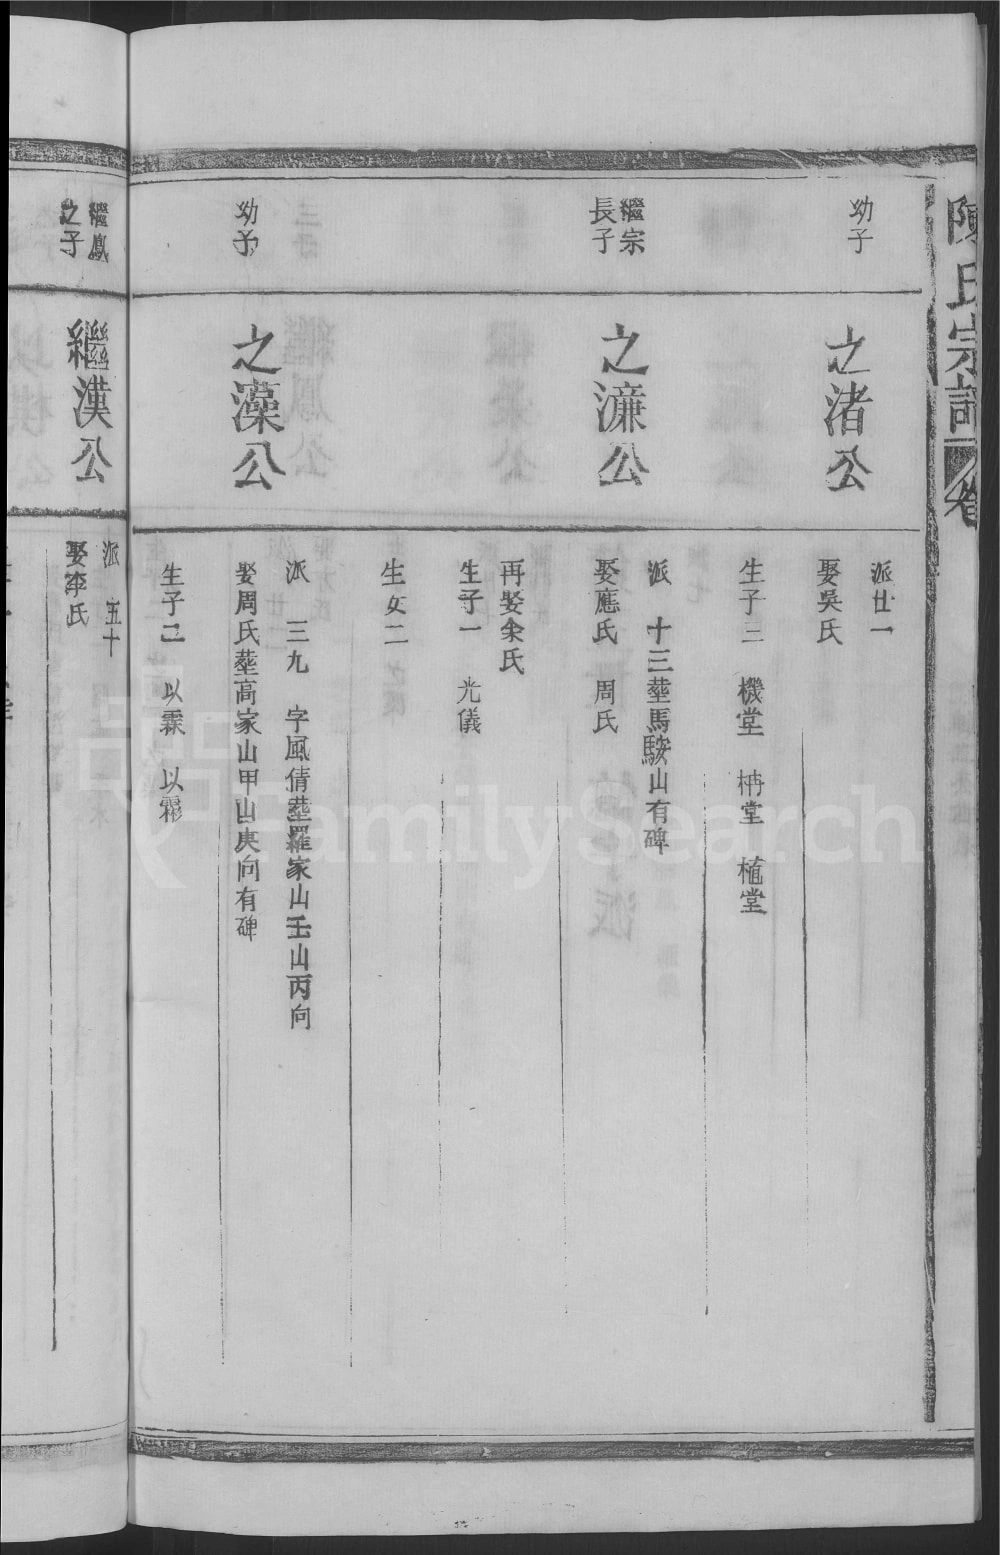 陳氏宗譜
卷
幼子
之渚公
派廿一
娶吳氏
生子三　機堂　栴堂　植堂
繼宗
長子
之濂公
派　十三塟馬鞍山有碑
娶應氏　周氏
再娶余氏
生子一　光儀
生女二
幼子
之藻公
派　三九　字風倩塟羅家山壬山丙向
娶周氏塟高家山甲山庚向有碑
生子二　以霖　以霦
繼鳳
之子
繼漢公
派　五十
娶李氏
FamilySearch